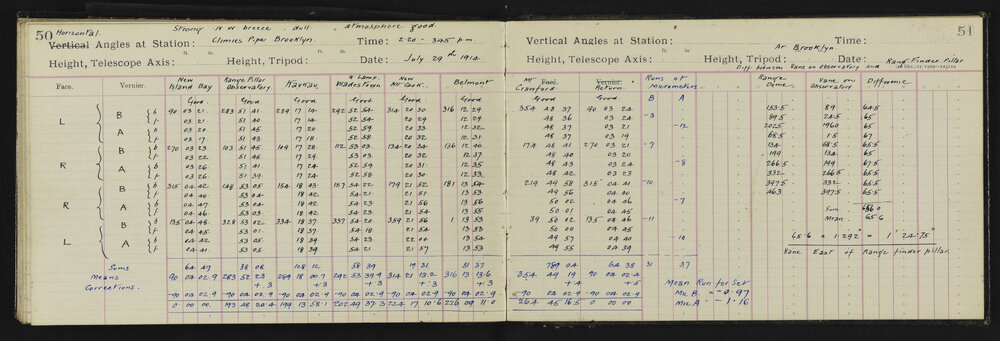 50 Horizontal. Strong N W breeze. dull. atmosphere good.
Vertical Angles at Station: Climies Pipe Brooklyn. Time: 2.20 - 3.45 p.m.
Height, Telescope Axis: ft. in. Height, Tripod: ft. in. Date: July 29th 1914
Face. Vernier. New Island Bay Range Pillar Observatory Kaukau. N Lamp. Wadestown New Mt Cook. Belmont
Good. Good Good Good Good Good
L B b 90 03 21 283 51 41 289 17 14 292 52 54 314 20 30 316 12 29
f 03 21 51 40 17 14 52 54 20 29 12 29
A b 03 20 51 45 17 20 52 59 20 33 12 32
f 03 17 51 43 17 18 52 58 20 32 12 31
R B b 270 03 23 103 51 45 109 17 28 112 53 03 134 20 34 136 12 40
f 03 22 51 45 17 29 53 03 20 32 12 37
A b 03 26 51 41 17 24 52 59 20 31 12 35
f 03 26 51 39 17 24 52 58 20 30 12 33
R B b 315 04 42 148 53 05 154 18 43 157 54 22 179 21 52 181 13 54
f 04 40 53 04 18 42 54 21 21 51 13 53
A b 04 47 53 04 18 42 54 23 21 56 13 56
f 04 46 53 03 18 42 54 23 21 54 13 55
L B b 135 04 45 328 53 02 334 18 37 337 54 20 359 21 56 1 13 53
f 04 45 53 01 18 37 54 18 21 54 13 53
A b 04 42 53 05 18 39 54 23 22 00 13 54
f 04 41 53 05 18 39 54 21 21 57 13 53
Sums 64 47 38 08 128 12 58 39 19 31 51 37
Means 90 04 02.9 283 52 23 289 18 00.7 292 53 39.9 314 21 13.2 316 13 13.6
Corrections. +.3 +.3 +.3 +.3 +.3
-90 04 02.9 -90 04 02.9 -90 04 02.9 -90 04 02.9 -90 04 02.9 -90 04 02.9
0 00 00 193 48 20.4 199 13 58.1 202 49 37.3 224 17 10.6 226 09 11.0
51
Vertical Angles at Station: At Brooklyn. Time:
Height, Telescope Axis: ft. in. Height, Tripod: ft. in. Date:
Diff between Vane on Observatory and Range Finder Pillar
Mt Crawford. Face. Vernier. Return. Runs of Micrometers. Range Dome. Vane on Observatory Difference
Good Good. B A
354 48 37 90 03 24 153.5 89 64.5
48 36 03 24 -3 89.5 24.5 65
48 37 03 21 -12 2025 1960 65
48 37 03 19 68.5 1.5 67
174 48 41 270 03 21 -7 134 68.5 65.5
48 40 03 20 199 134 65
48 43 03 24 -8 266.5 199 67.5
48 42 03 23 332 266.5 65.5
219 49 58 315 04 41 -10 397.5 332 65.5
49 56 04 40 463 397.5 65.5
50 02 04 46 -7
50 01 04 45 Sum. 656.0
39 50 02 135 04 46 -11 Mean. 65.6
50 00 04 45
49 57 04 40 -10 65.6 x 1.292" = 1' 24.75"
49 55 04 39
Vane East of Range finder pillar.
789 04 64 38 31 37
354 49 19 90 04 02.4 Mean Run for Set
+.4 +.5 Mic B = -0.97
-90 04 02.9 90 04 02.9 Mic A = -1.16
264 45 16.5 0 00 00